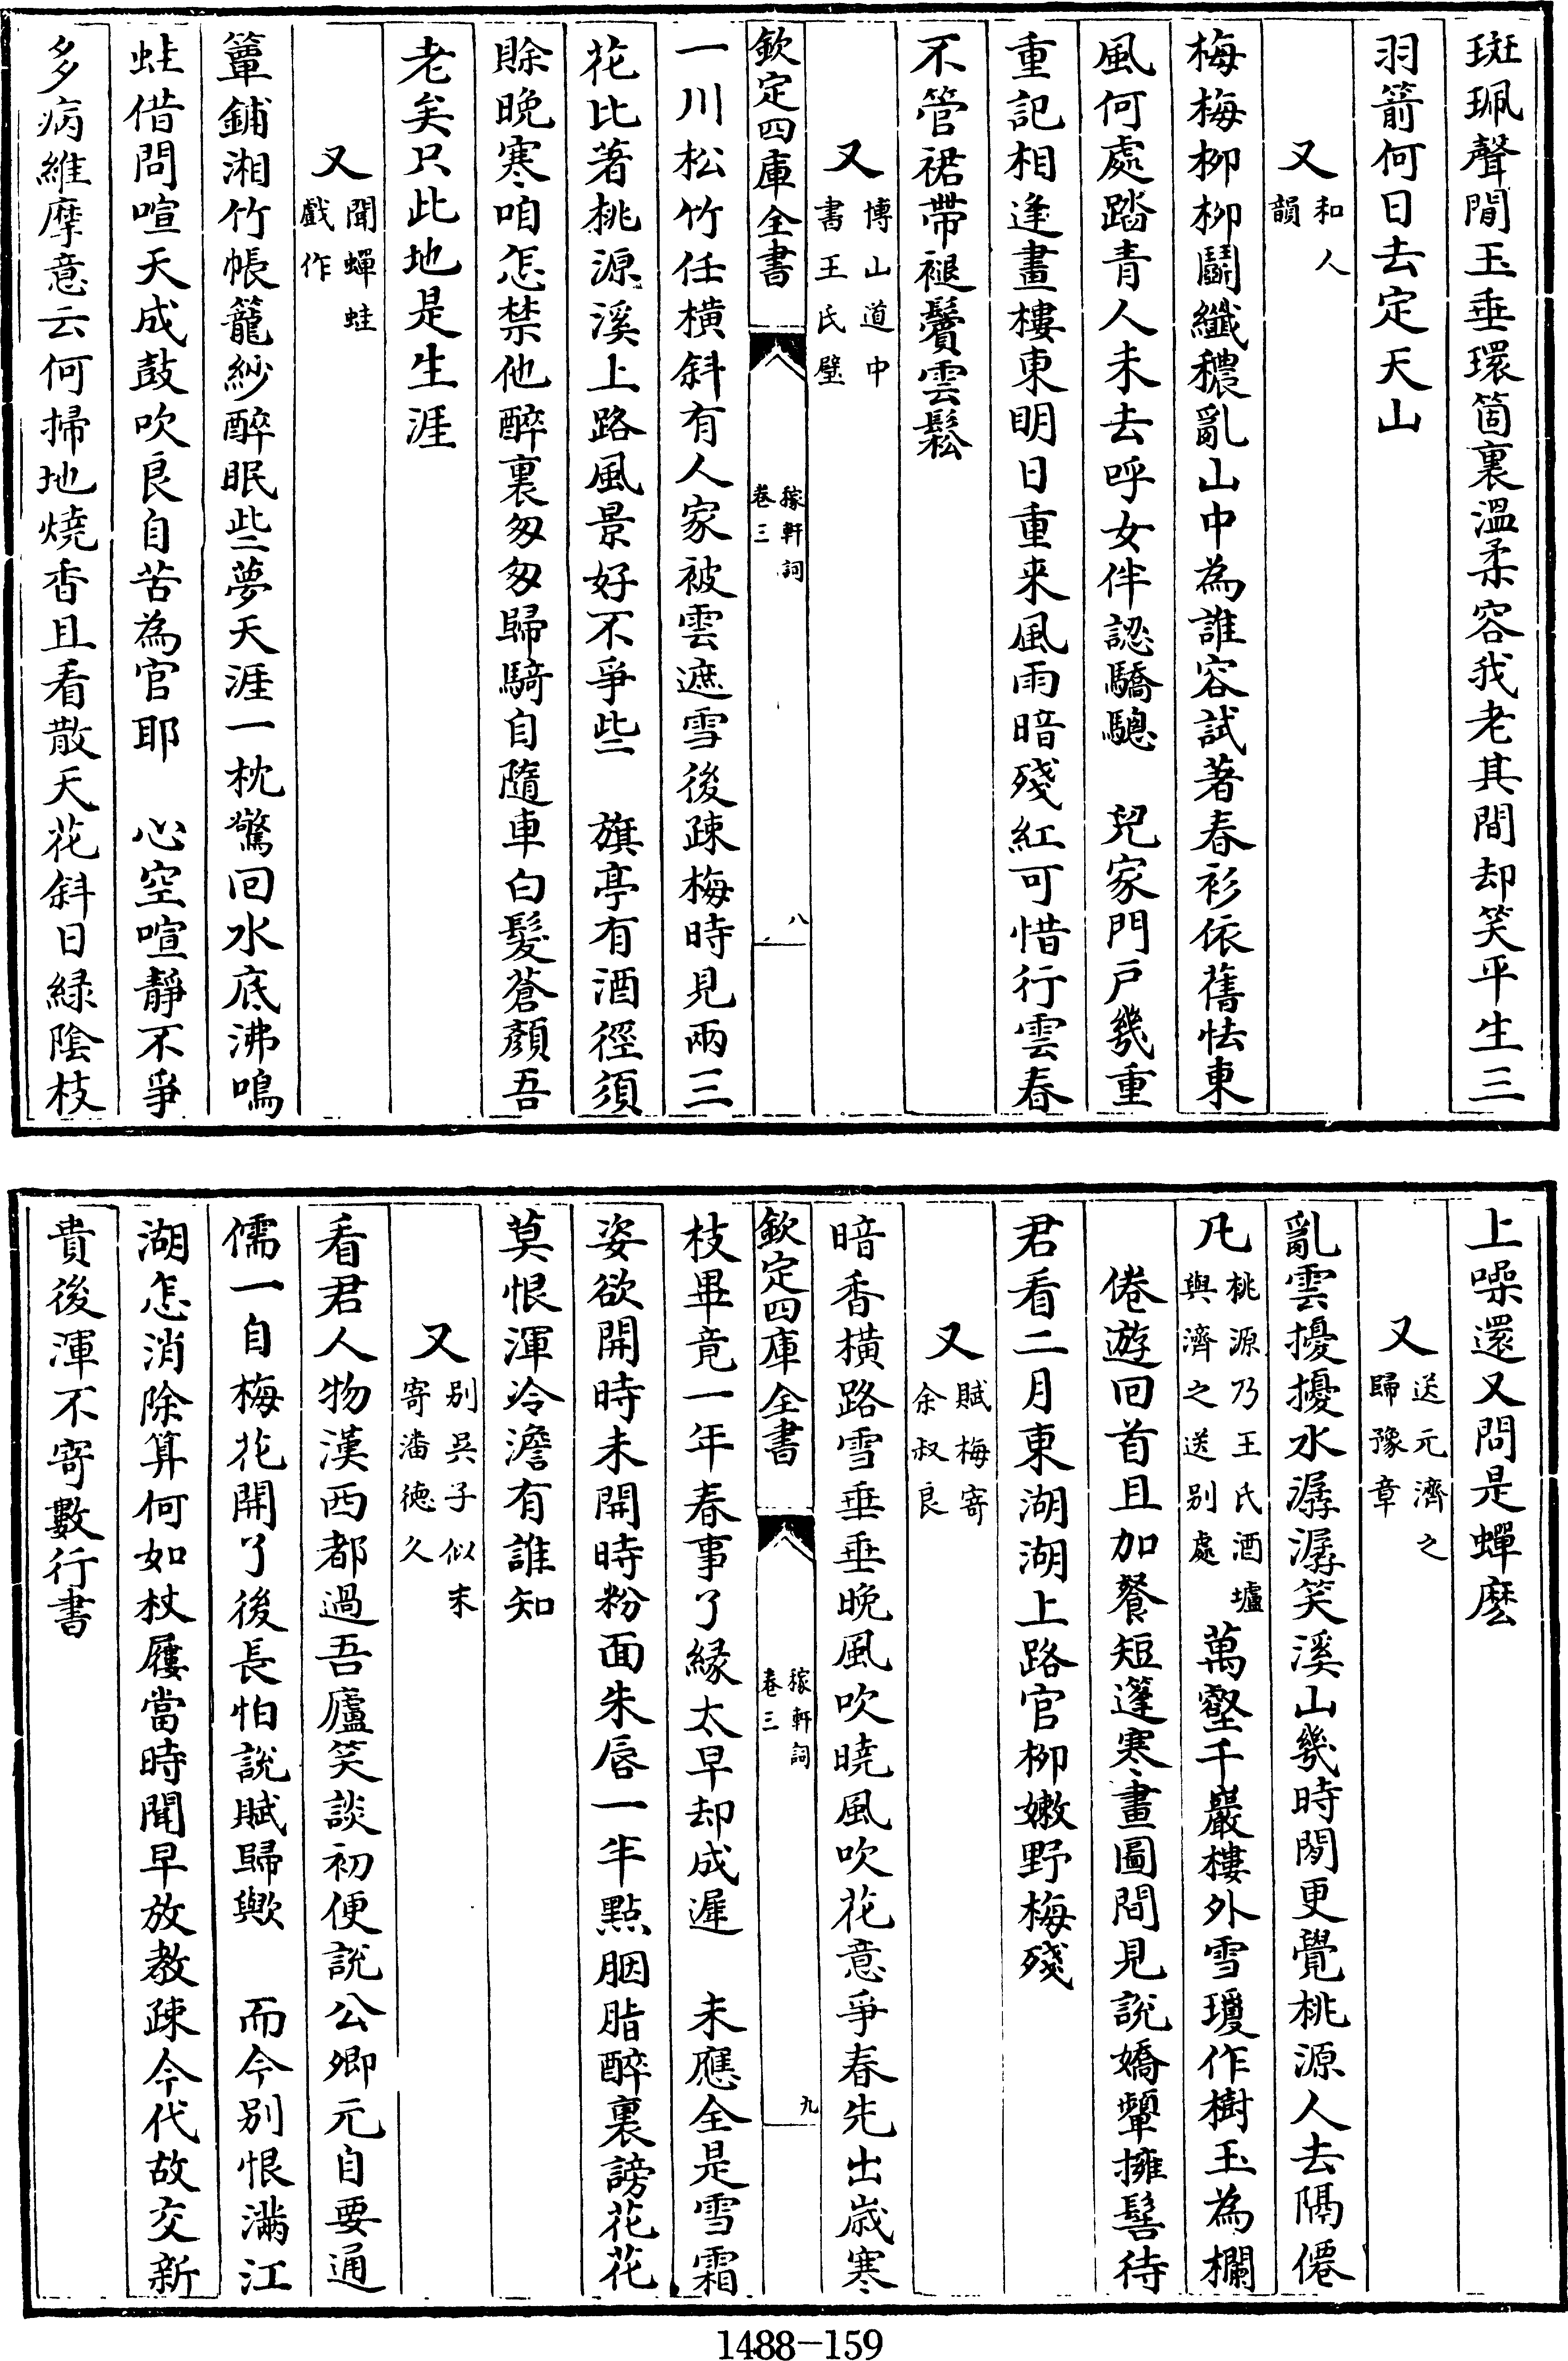 斑珮聲閒玉垂環箇裏溫柔容我老其間却笑平生三
羽箭何日去定天山
又 和人韻
梅梅柳柳鬭纖穠亂山中為誰容試著春衫依舊怯東
風何處踏青人未去呼女伴認驕驄　兒家門戶幾重
重記相逢畫樓東明日重來風雨暗殘紅可惜行雲春
不管裙帶褪鬢雲鬆
又 博山道中書王氏壁
欽定四庫全書 稼軒詞 卷三 八
一川松竹任橫斜有人家被雲遮雪後疎梅時見兩三
花比著桃源溪上路風景好不爭些　旗亭有酒徑須
賒晚寒咱怎禁他醉裏匆匆歸騎自隨車白髮蒼顏吾
老矣只此地是生涯
又 聞蟬蛙戲作
簟鋪湘竹帳籠紗醉眠些夢天涯一枕驚回水底沸鳴
蛙借問喧天成鼓吹良自苦為官耶　心空喧靜不爭
多病維摩意云何掃地燒香且看散天花斜日綠陰枝
上噪還又問是蟬麽
又 送元濟之歸豫章
亂雲擾擾水潺潺笑溪山幾時閒更覺桃源人去隔僊
凡 桃源乃王氏酒壚與濟之送别處 萬壑千巖樓外雪瓊作樹玉為欄
倦遊回首且加餐短篷寒畫圖間見說嬌顰擁髻待
君看二月東湖湖上路官柳嫩野梅殘
又 賦梅寄余叔良
暗香橫路雪垂垂晚風吹曉風吹花意爭春先出歲寒
欽定四庫全書 稼軒詞 卷三 九
枝畢竟一年春事了緣太早却成遲　未應全是雪霜
姿欲開時未開時粉面朱唇一半點胭脂醉裏謗花花
莫恨渾冷澹有誰知
又 别吳子似末寄潘德久
看君人物漢西都過吾廬笑談初便說公卿元自要通
儒一自梅花開了後長怕說賦歸歟　而今别恨滿江
湖怎消除算何如杖屨當時聞早放教疎今代故交新
貴後渾不寄數行書
1488-159